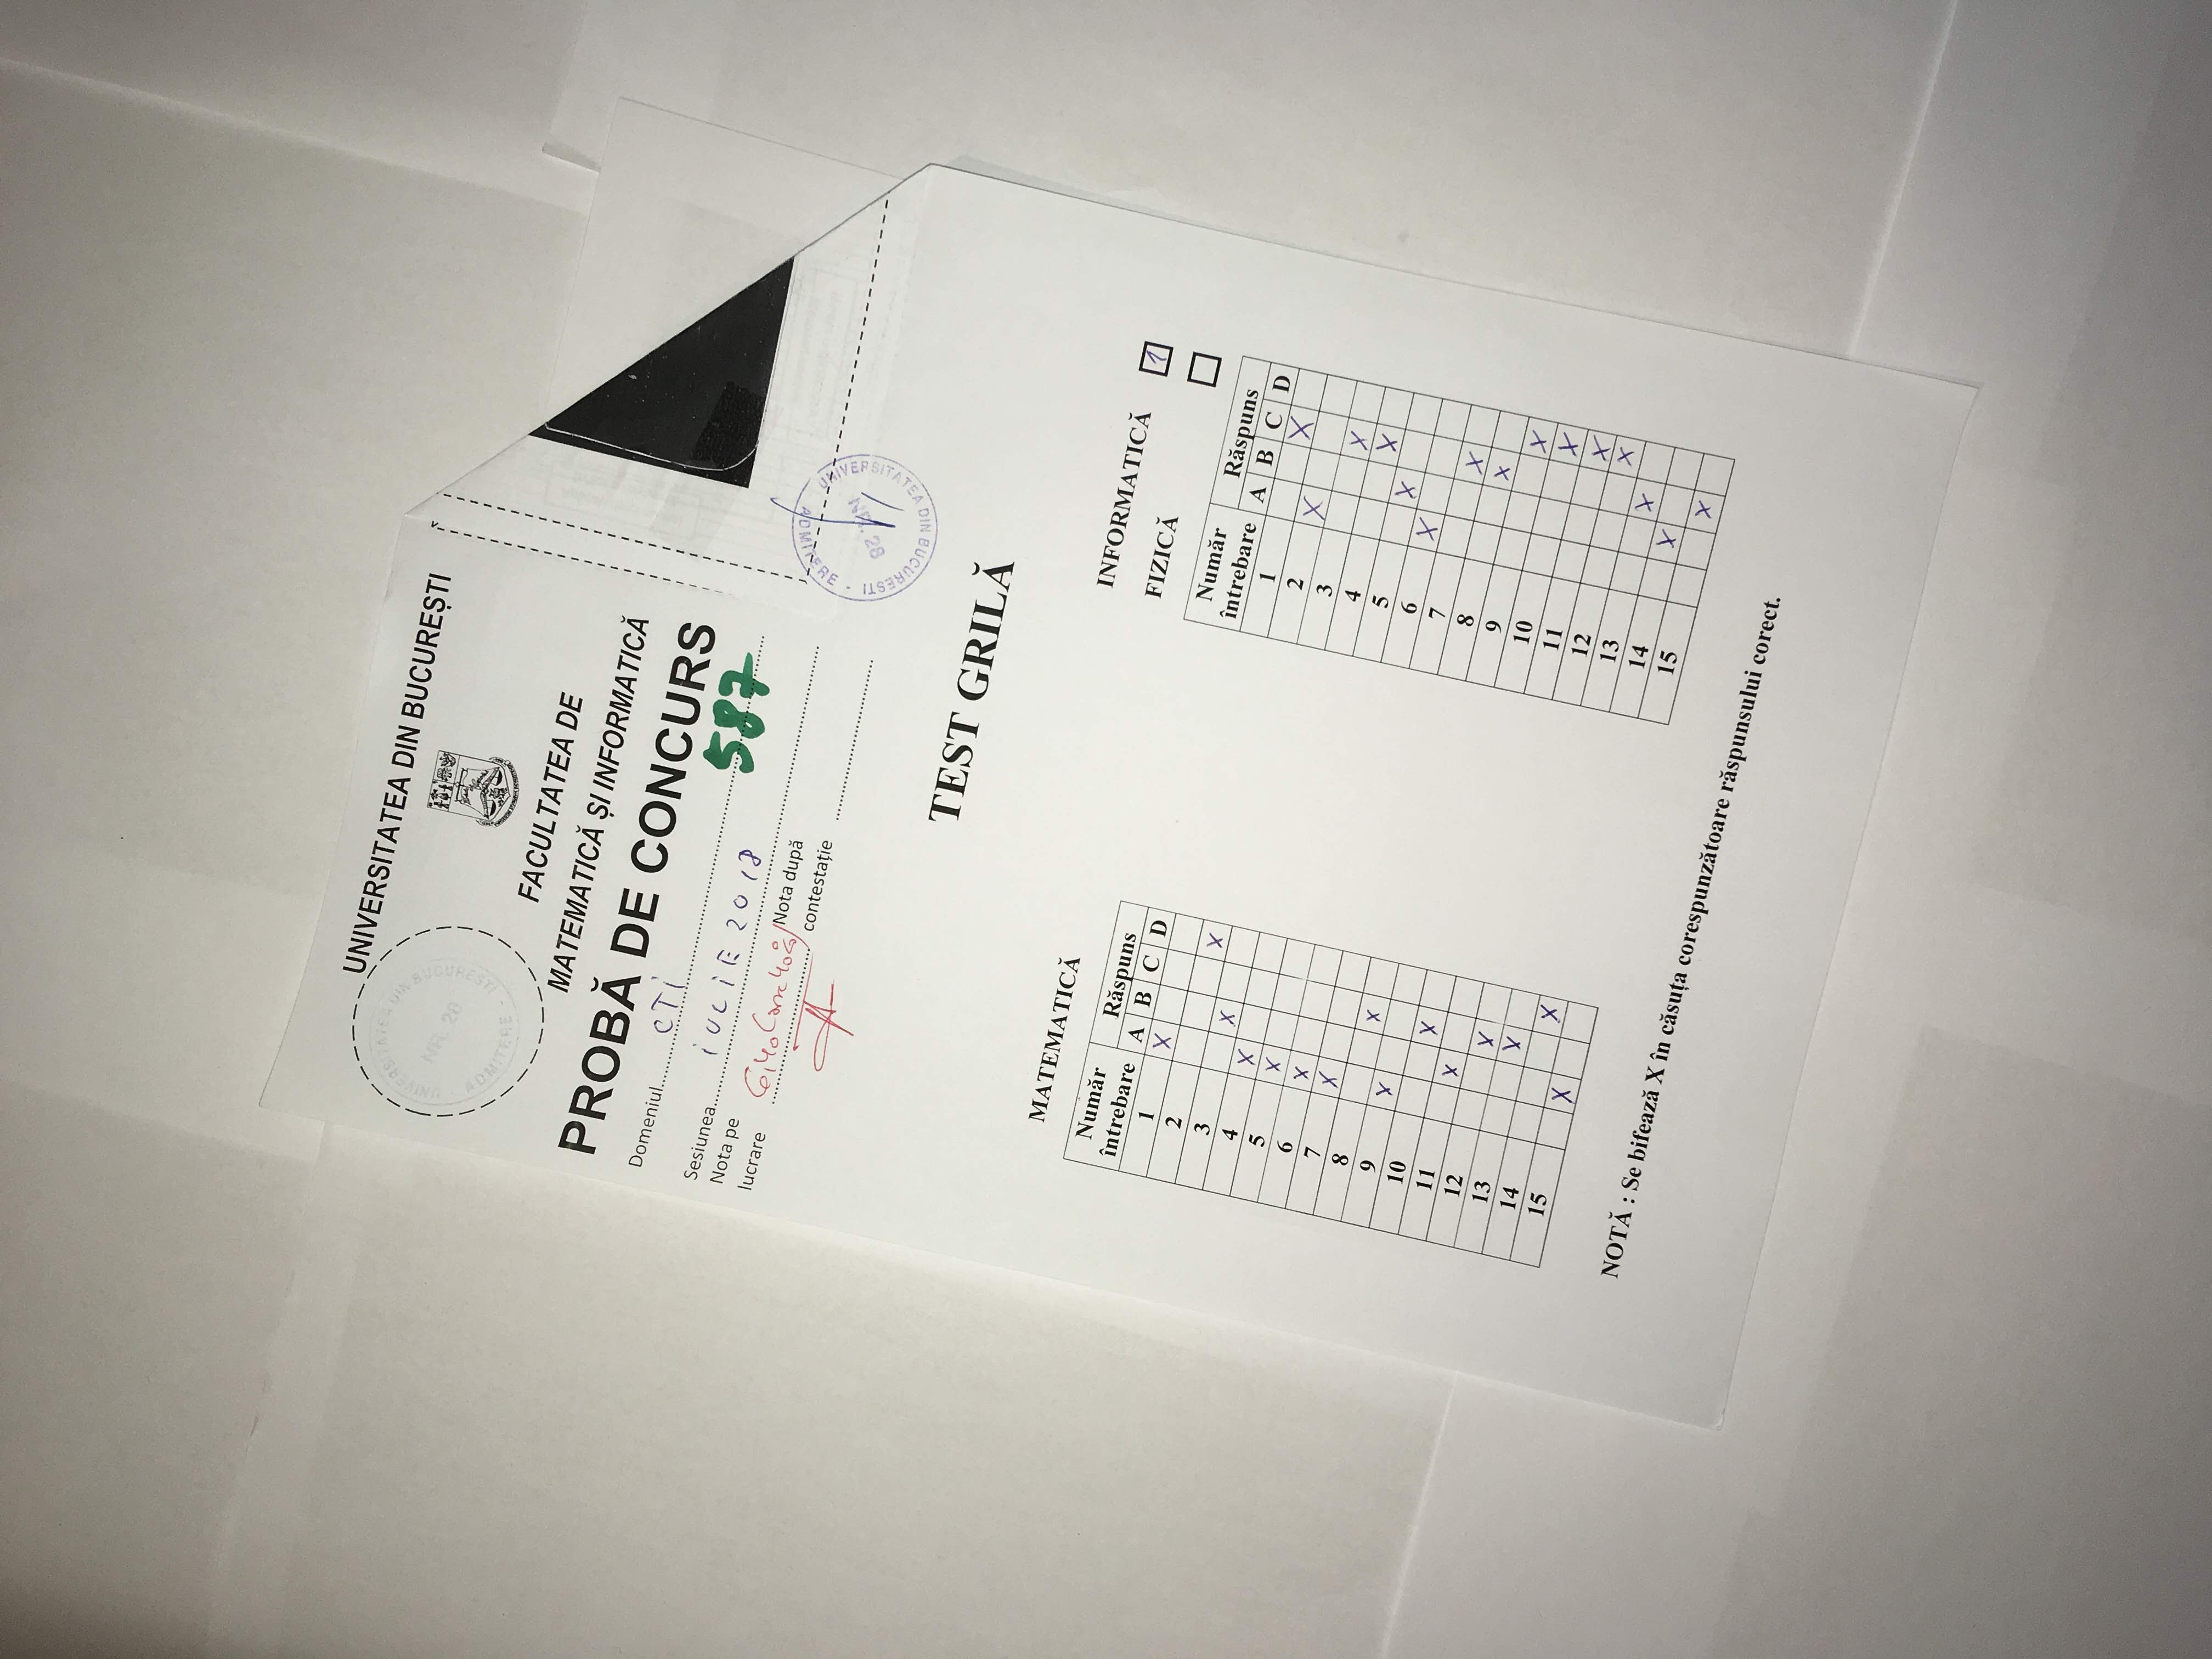 UNIVERSITATEA DIN BUCUREȘTI
UNIVERSITATEA DIN BUCURESTI - ADMITERE -
FACULTATEA DE
MATEMATICĂ ȘI INFORMATICĂ
PROBĂ DE CONCURS
Domeniul CTi
Sesiunea iULiE 2018
587
Nota pe
lucrare
Nota după
contestație
UNIVERSITATEA DIN BUCURESTI - ADMITERE
TEST GRILĂ
MATEMATICĂ
Număr
întrebare Răspuns
A B C D
1 X
2 X
3 X
4 X
5 X
6 X
7 X
8 X
9 X
10 X
11 X
12 X
13 X
14 X
15 X
INFORMATICĂ 1
FIZICĂ
Număr
întrebare Răspuns
A B C D
1 X
2 X
3 X
4 X
5 X
6 X
7 X
8 X
9 X
10 X
11 X
12 X
13 X
14 X
15 X
NOTĂ : Se bifează X în căsuța corespunzătoare răspunsului corect.